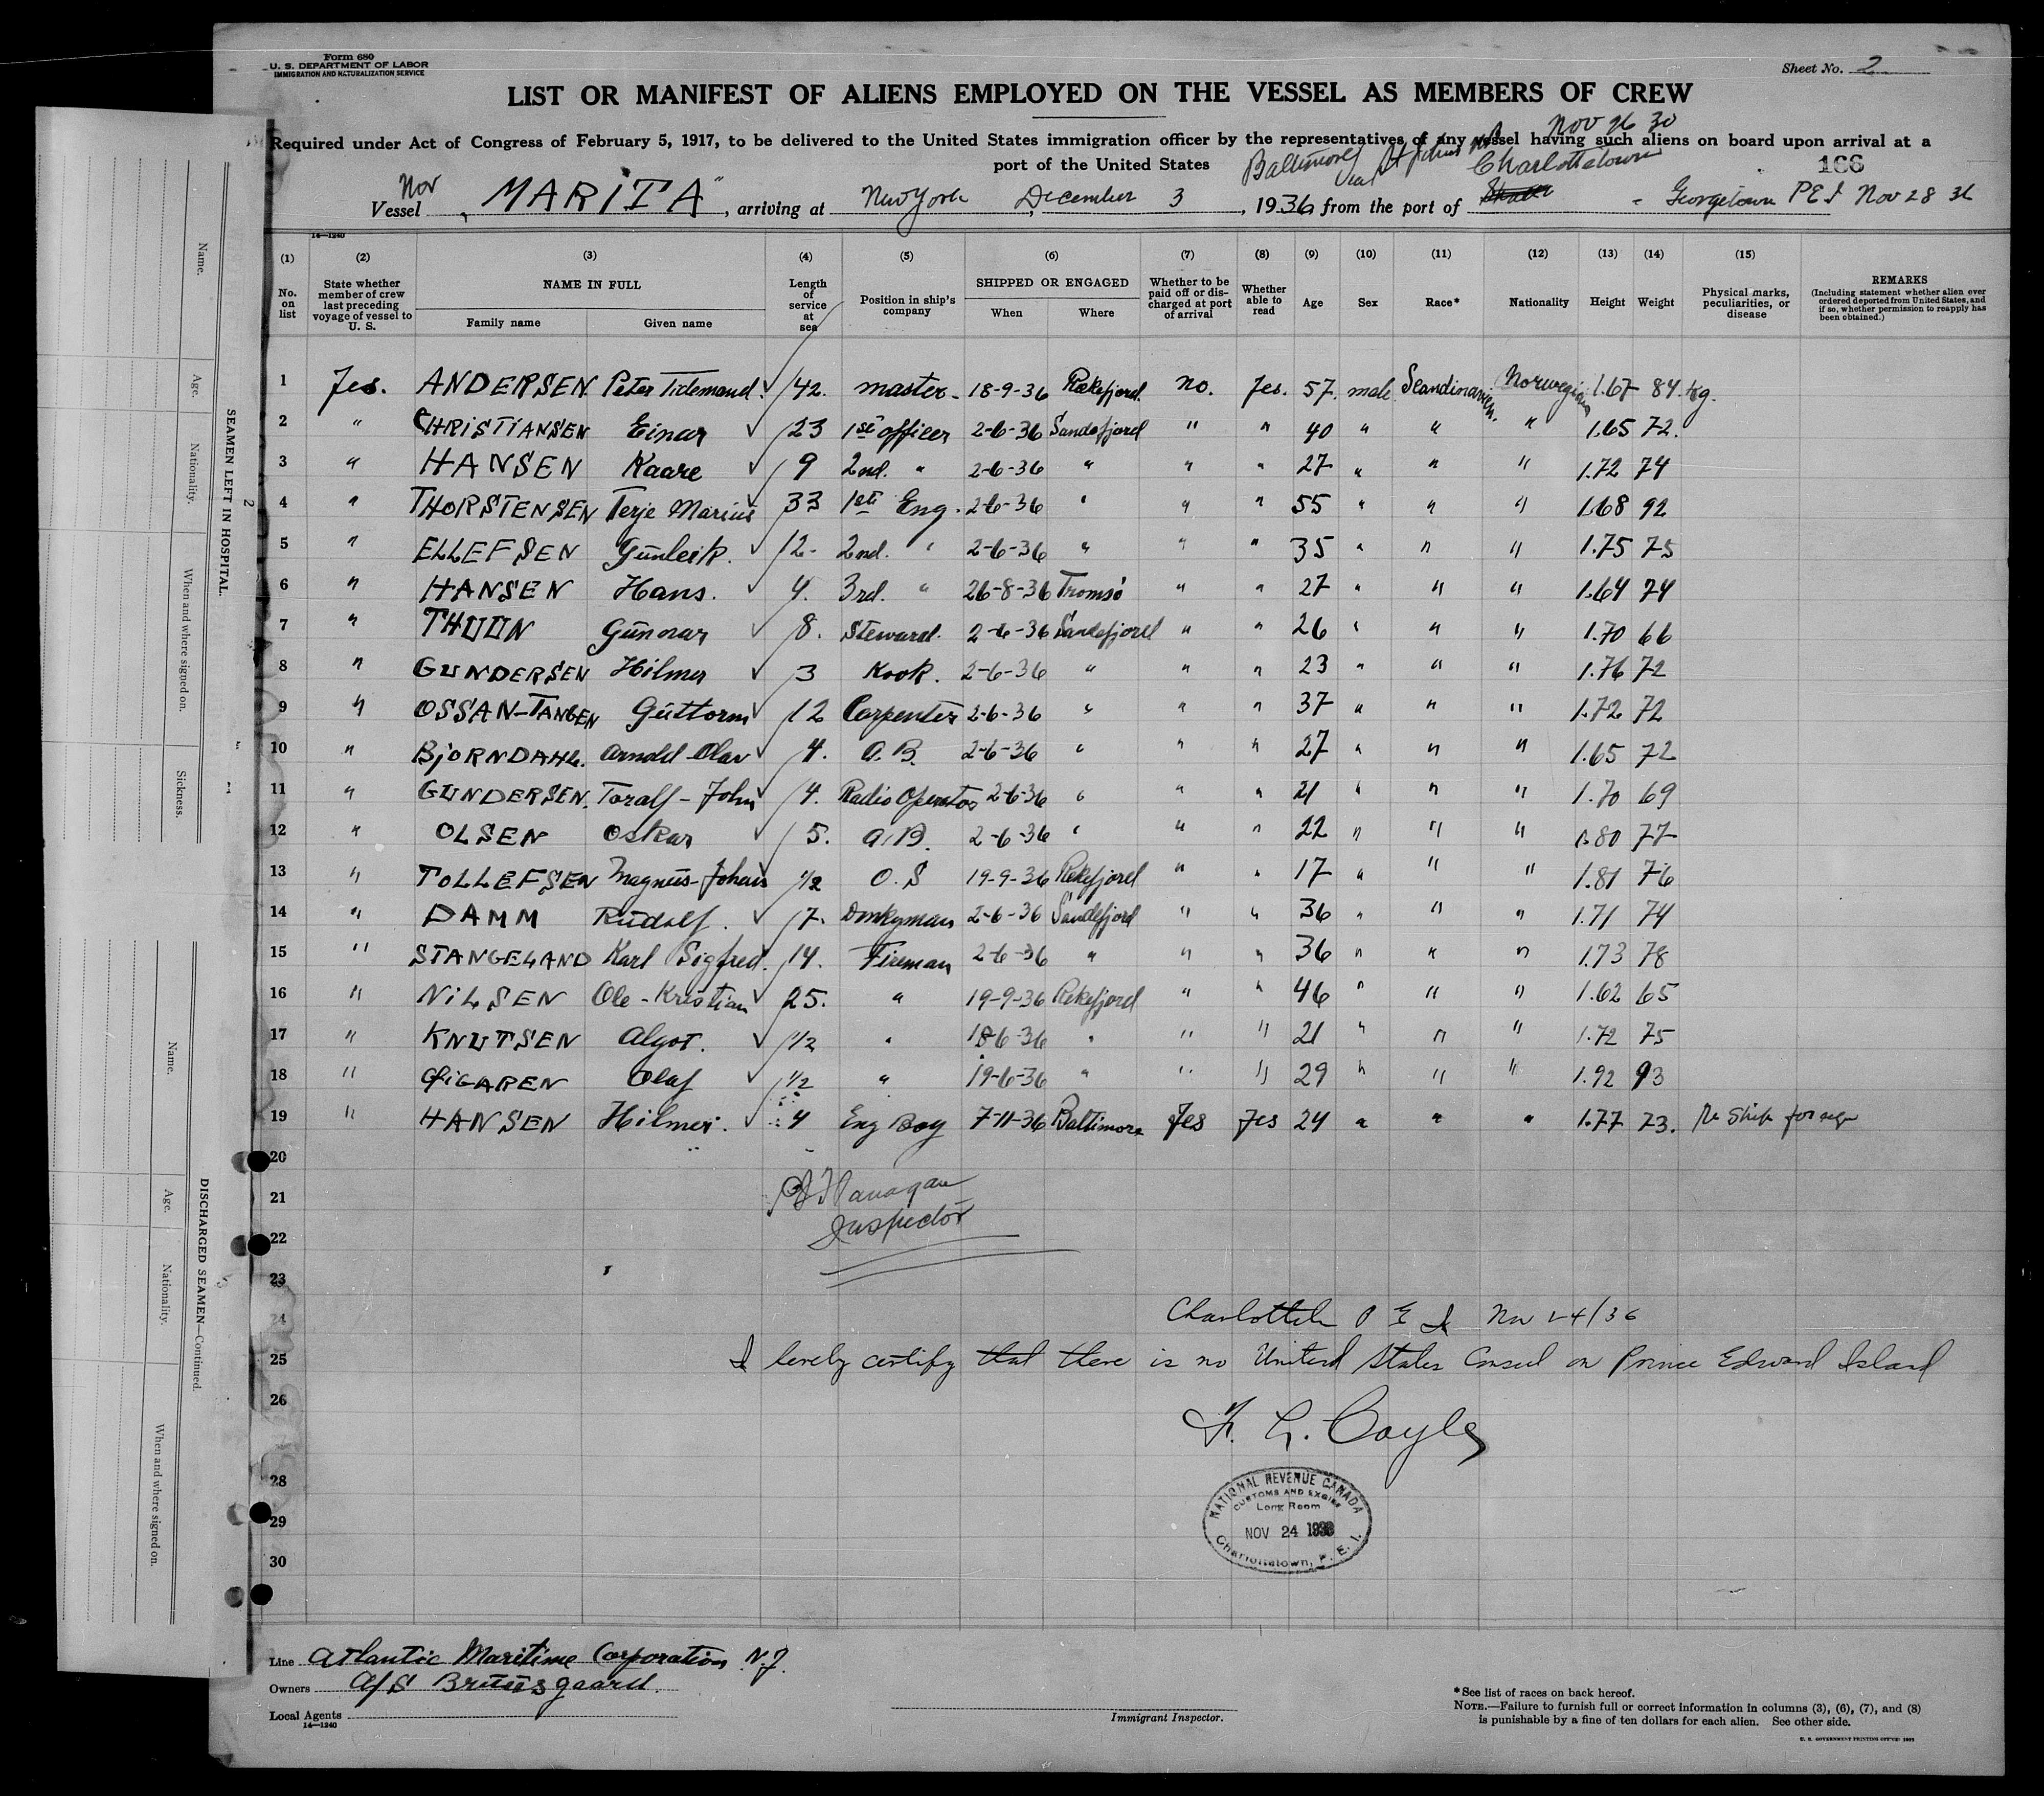 Form 680
U. S. DEPARTMENT OF LABOR
IMMIGRATION AND NATURALIZATION SERVICE
Sheet No. 2
LIST OR MANIFEST OF ALIENS EMPLOYED ON THE VESSEL AS MEMBERS OF CREW
Required under Act of Congress of February 5, 1917, to be delivered to the United States immigration officer by the representatives of any vessel having such aliens on board upon arrival at a
port of the United States
Nov 26 30
Baltimore St Johns Charlottetown
166
Nor Vessel "MARITA", arriving at New York December 3, 1936, from the port of - Georgetown P E I Nov 28 36
14—1240
(1) (2) (3) (4) (5) (6) (7) (8) (9) (10) (11) (12) (13) (14) (15)
No. on list
State whether member of crew last preceding voyage of vessel to U. S.
NAME IN FULL
Family name Given name
Length of service at sea
Position in ship's company
SHIPPED OR ENGAGED
When Where
Whether to be paid off or discharged at port of arrival
Whether able to read
Age
Sex
Race*
Nationality
Height
Weight
Physical marks, peculiarities, or disease
REMARKS
(Including statement whether alien ever ordered deported from United States, and if so, whether permission to reapply has been obtained.)
1 Yes. ANDERSEN Peter Tidemand. 42. master - 18-9-36 Rekefjord no. Yes. 57. male Scandinavien. Norwegian 1.67 84. kg.
2 " CHRISTIANSEN Einar 23 1st officer 2-6-36 Sandefjord " " 40 " " " 1.65 72.
3 " HANSEN Kaare 9 2nd. " 2-6-36 " " " 27 " " " 1.72 74
4 " THORSTENSEN Terje Marius 33 1st Eng. 2-6-36 " " " 55 " " " 1.68 92
5 " ELLEFSEN Gunleik. 12- 2nd. " 2-6-36 " " " 35 " " " 1.75 75
6 " HANSEN Hans. 4. 3rd. " 26-8-36 Tromsö " " 27 " " " 1.64 74
7 " THUUN Gunnar 8. Steward. 2-6-36 Sandefjord " " 26 " " " 1.70 66
8 " GUNDERSEN Hilmer 3 Kook. 2-6-36 " " " 23 " " " 1.76 72
9 " OSSAN-TANGEN Guttorm 12 Carpenter 2-6-36 " " " 37 " " " 1.72 72
10 " BJORNDAHL. Arnold Olav 4. A.B. 2-6-36 " " " 27 " " " 1.65 72
11 " GUNDERSEN. Toralf - John 4. Radio Operator 2-6-36 " " " 21 " " " 1.70 69
12 " OLSEN Oskar 5. A.B. 2-6-36 " " " 22 " " " 1.80 77
13 " TOLLEFSEN Magnus-Johan 1/2 O.S 19-9-36 Rekefjord " " 17 " " " 1.81 76
14 " DAMM Rudolf. 7. Donkyman 2-6-36 Sandefjord " " 36 " " " 1.71 74
15 " STANGELAND Karl Sigfred. 14. Fireman 2-6-36 " " " 36 " " " 1.73 78
16 " NILSEN Ole-Kristian 25. " 19-9-36 Rekefjord " " 46 " " " 1.62 65
17 " KNUTSEN Algot. 1/2 " 18-6-36 " " " 21 " " " 1.72 75
18 " Olaf 1/2 " 19-6-36 " " " 29 " " " 1.92 93
19 " HANSEN Hilmer. 4 Eng Boy 7-11-36 Baltimore Yes Yes 24 " " " 1.77 73. Re Ship foreign
20
21
22
23
24
25
26
28
29
30
Flanagan
Inspector
P E I Nov 24/36
I hereby certify that there is no United States Consul on Prince Edward Island
F. L. Coyle
NATIONAL REVENUE CANADA
CUSTOMS AND EXCISE
Long Room
NOV 24 1936
Charlottetown, P. E. I.
Line Atlantic Maritime Corporation N.J.
Owners A/S Bruusgaard.
Local Agents
14—1240
Immigrant Inspector.
*See list of races on back hereof.
NOTE.—Failure to furnish full or correct information in columns (3), (6), (7), and (8)
is punishable by a fine of ten dollars for each alien. See other side.
SEAMEN LEFT IN HOSPITAL.
2
Name. Age. Nationality. When and where signed on. Sickness.
DISCHARGED SEAMEN—Continued.
Name. Age. Nationality. When and where signed on.